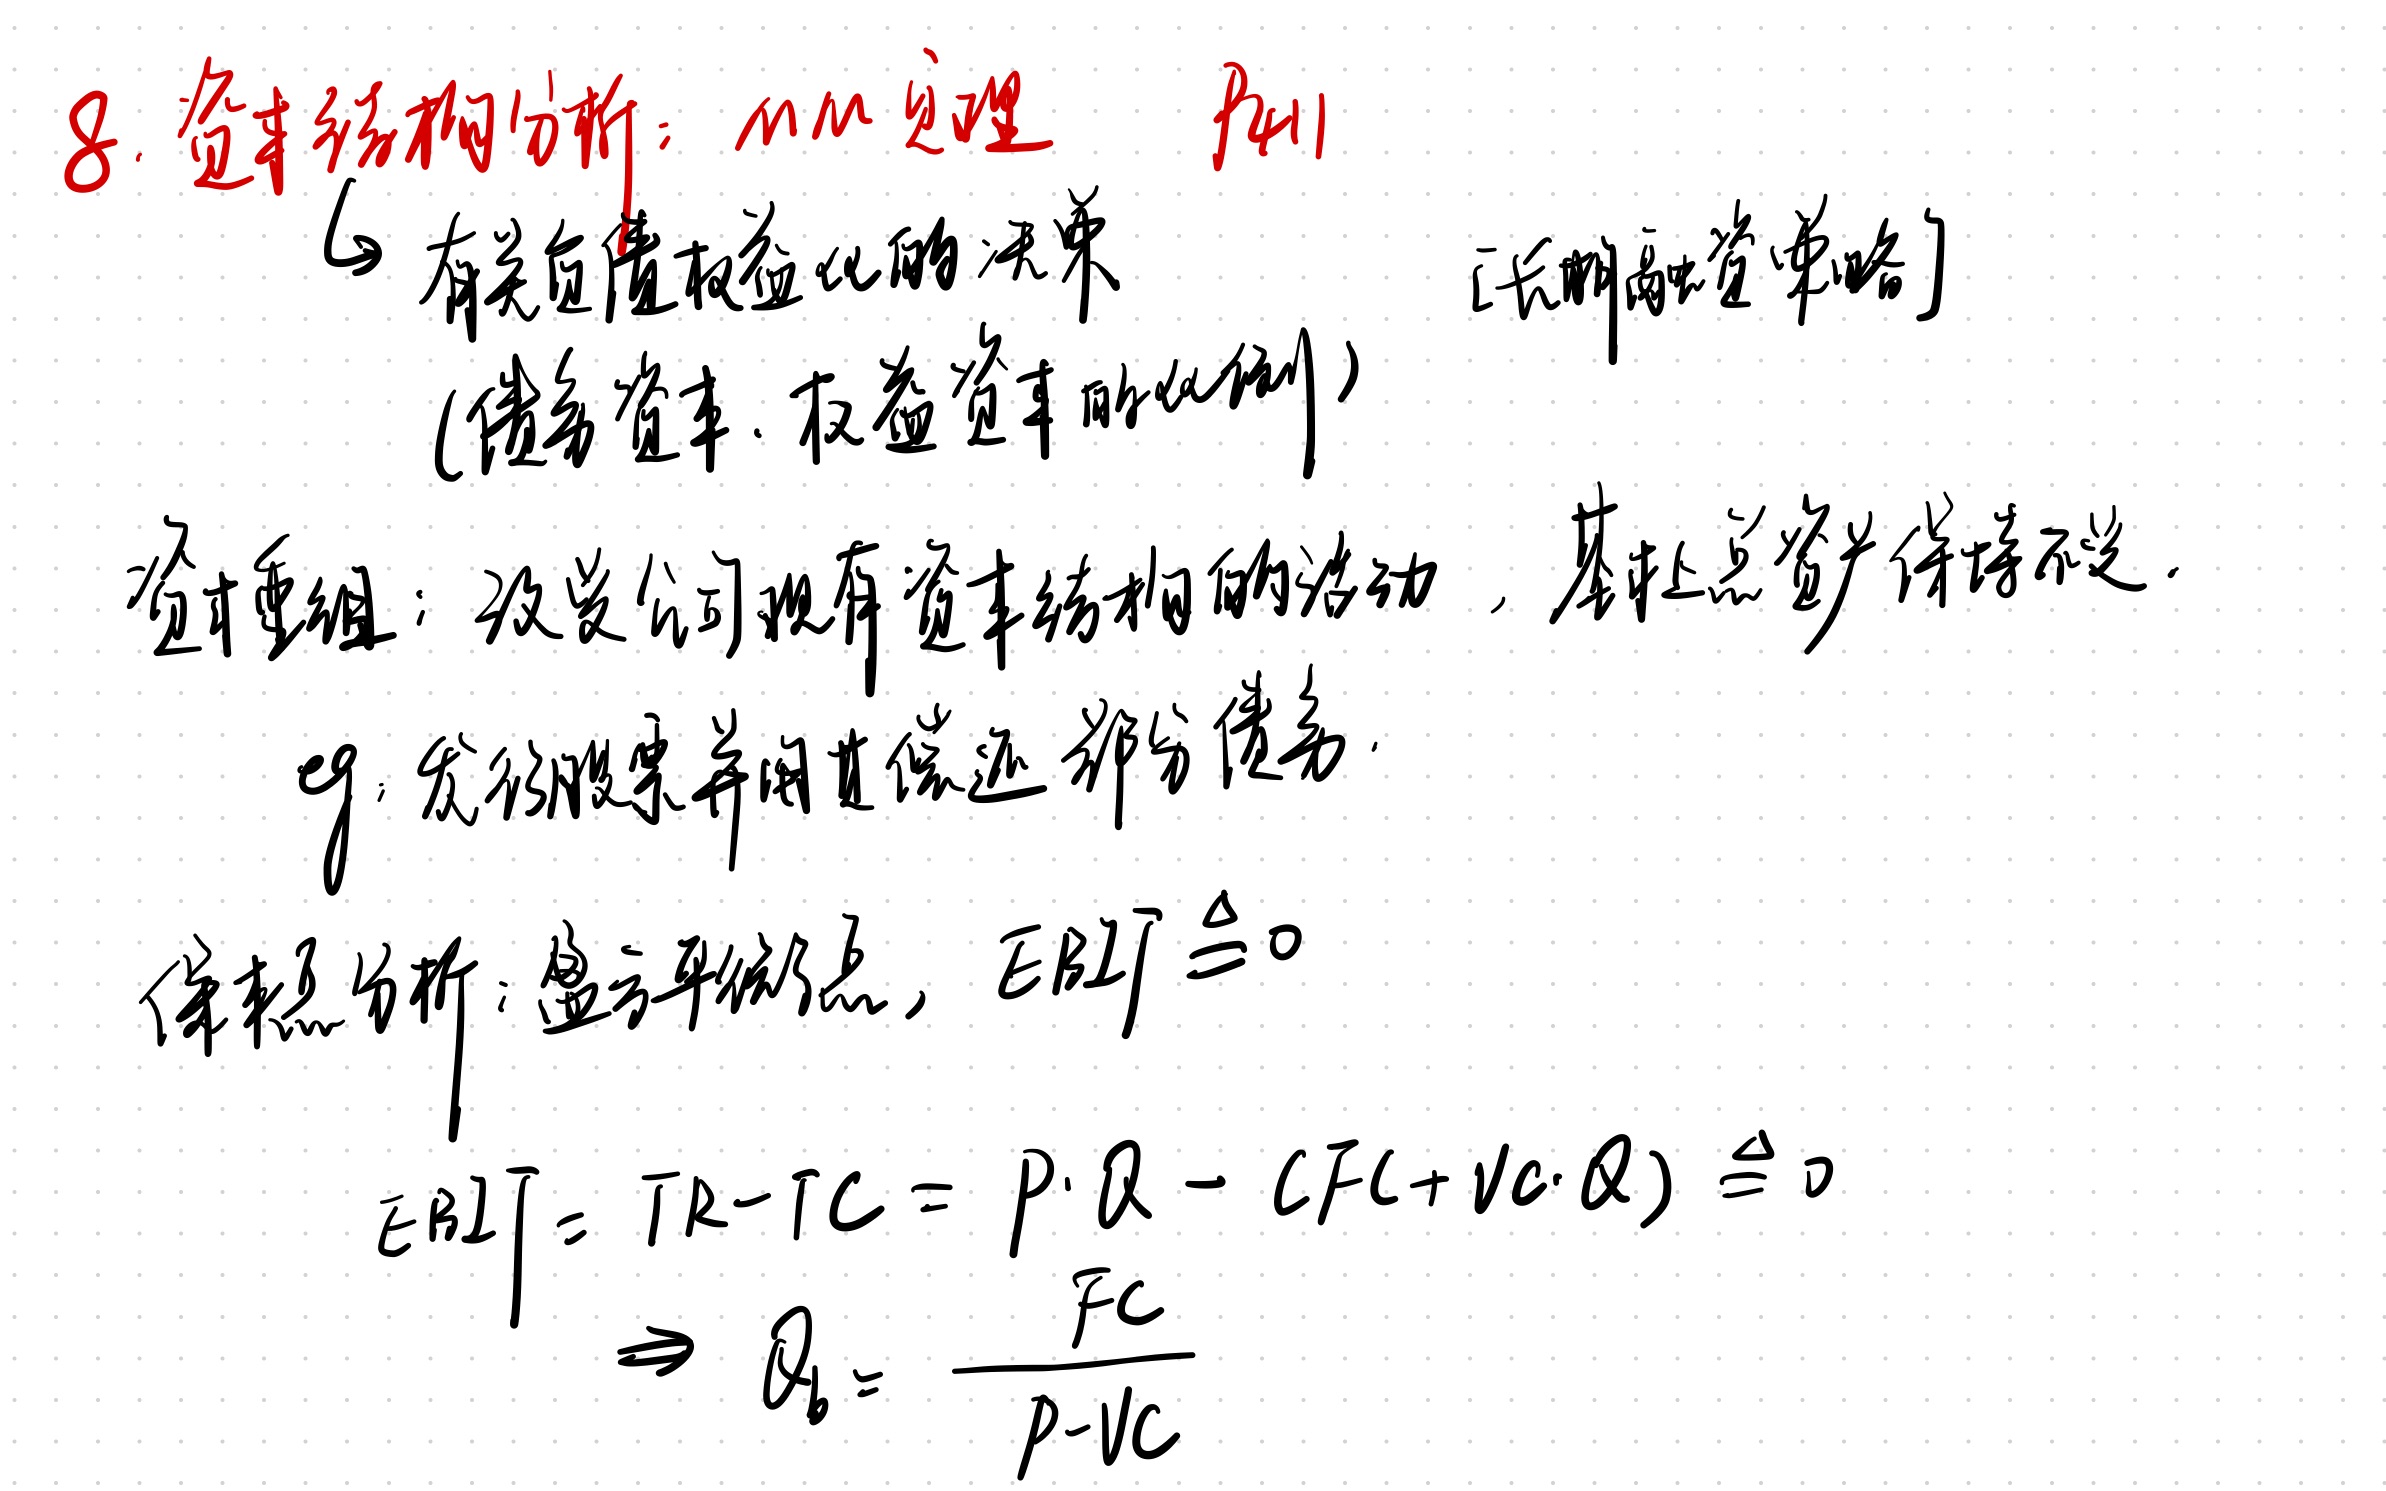 8. 资本结构分析：MM定理 P211
↳ 有关负债权益比的决策 [长期融资策略]
(债务资本、权益资本的比例)
资本重组：改变公司现有资本结构的活动，其中总资产保持不变.
eg: 发行股票并用其偿还部分债务.
保本点分析：盈亏平衡点, EBIT ≜ 0
EBIT = TR - TC = P·Q - (FC + VC·Q) ≜ 0
⇒ Q_b = FC / (P-VC)